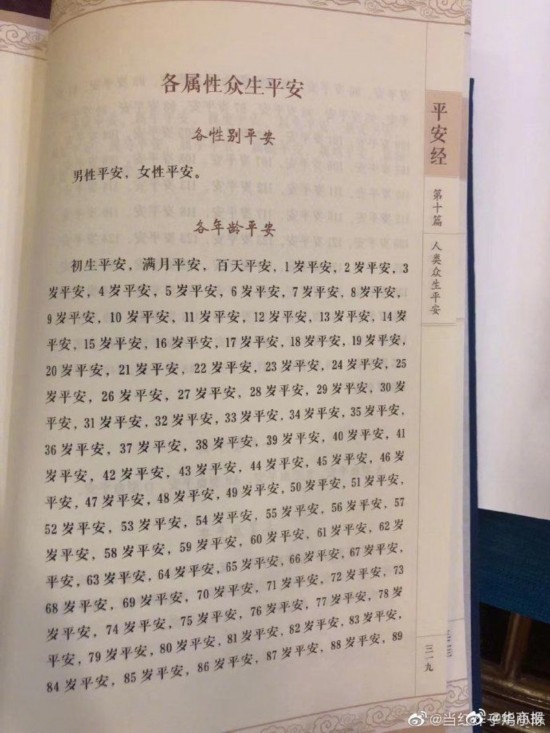 各属性众生平安
各性别平安
男性平安，女性平安。
各年龄平安
初生平安，满月平安，百天平安，1岁平安，2岁平安，3
岁平安，4岁平安，5岁平安，6岁平安，7岁平安，8岁平安，
9岁平安，10岁平安，11岁平安，12岁平安，13岁平安，14岁
平安，15岁平安，16岁平安，17岁平安，18岁平安，19岁平安，
20岁平安，21岁平安，22岁平安，23岁平安，24岁平安，25
岁平安，26岁平安，27岁平安，28岁平安，29岁平安，30岁
平安，31岁平安，32岁平安，33岁平安，34岁平安，35岁平安，
36岁平安，37岁平安，38岁平安，39岁平安，40岁平安，41
岁平安，42岁平安，43岁平安，44岁平安，45岁平安，46岁
平安，47岁平安，48岁平安，49岁平安，50岁平安，51岁平安，
52岁平安，53岁平安，54岁平安，55岁平安，56岁平安，57
岁平安，58岁平安，59岁平安，60岁平安，61岁平安，62岁
平安，63岁平安，64岁平安，65岁平安，66岁平安，67岁平安，
68岁平安，69岁平安，70岁平安，71岁平安，72岁平安，73
岁平安，74岁平安，75岁平安，76岁平安，77岁平安，78岁
平安，79岁平安，80岁平安，81岁平安，82岁平安，83岁平安，
84岁平安，85岁平安，86岁平安，87岁平安，88岁平安，89
平安经
第十篇
人类众生平安
三一九
@当红
@华商报